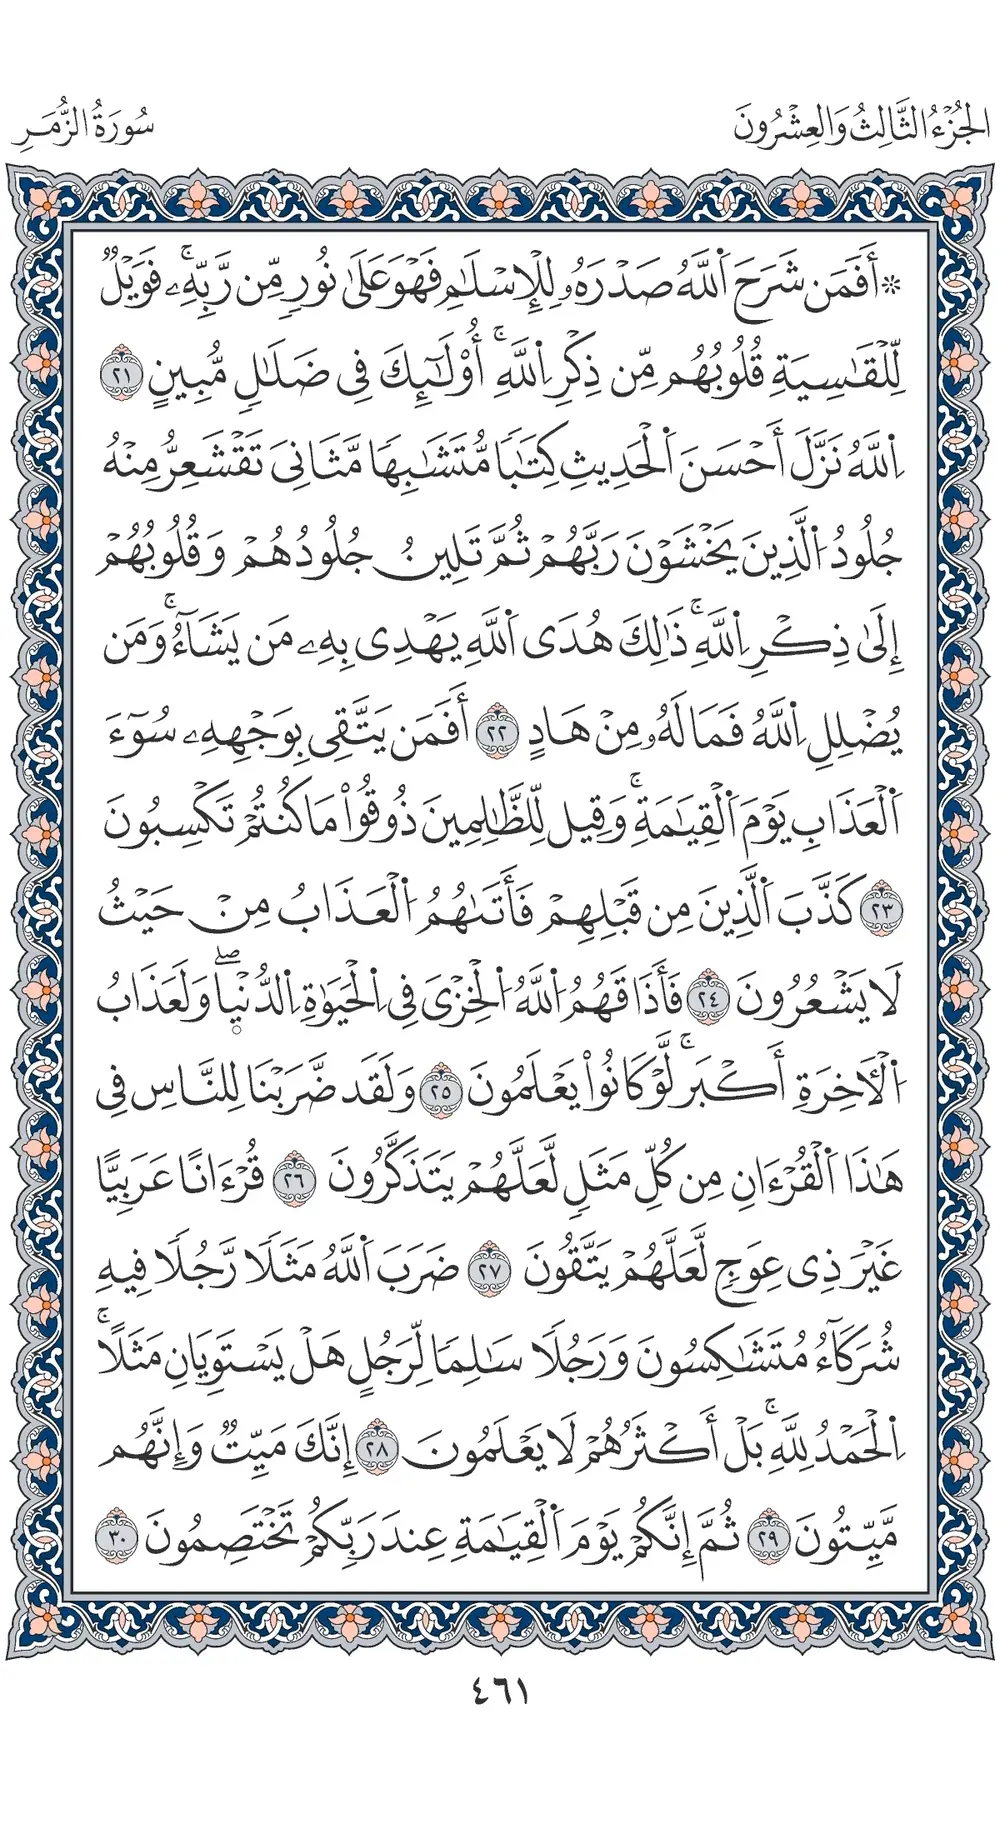 الجُزْءُ الثَّالِثُ وَالعِشْرُونَ
سُورَةُ الزُّمَرِ
۞ أَفَمَن شَرَحَ اَللَّهُ صَدْرَهُۥ لِلْإِسْلَٰمِ فَهْوَ عَلَىٰ نُورٖ مِّن رَّبِّهِۦۚ فَوَيْلٞ
لِّلْقَٰسِيَةِ قُلُوبُهُم مِّن ذِكْرِ اِللَّهِۚ أُوْلَٰٓئِكَ فِى ضَلَٰلٖ مُّبِينٍ ٢١
اِللَّهُ نَزَّلَ أَحْسَنَ اَلْحَدِيثِ كِتَٰبٗا مُّتَشَٰبِهٗا مَّثَانِىَ تَقْشَعِرُّ مِنْهُ
جُلُودُ اُلَّذِينَ يَخْشَوْنَ رَبَّهُمْ ثُمَّ تَلِينُ جُلُودُهُمْ وَقُلُوبُهُمْ
إِلَىٰ ذِكْرِ اِللَّهِۚ ذَٰلِكَ هُدَى اَللَّهِ يَهْدِى بِهِۦ مَن يَشَآءُۚ وَمَن
يُضْلِلِ اِللَّهُ فَمَا لَهُۥ مِنْ هَادٍ ٢٢ أَفَمَن يَتَّقِى بِوَجْهِهِۦ سُوٓءَ
اَلْعَذَابِ يَوْمَ اَلْقِيَٰمَةِۚ وَقِيلَ لِلظَّٰلِمِينَ ذُوقُواْ مَا كُنتُمْ تَكْسِبُونَ
٢٣ كَذَّبَ اَلَّذِينَ مِن قَبْلِهِمْ فَأَتَىٰهُمُ اُلْعَذَابُ مِنْ حَيْثُ
لَا يَشْعُرُونَ ٢٤ فَأَذَاقَهُمُ اُللَّهُ اُلْخِزْىَ فِى اِلْحَيَوٰةِ اِلدُّنْيَاۖ وَلَعَذَابُ
اُلْأٓخِرَةِ أَكْبَرُۚ لَوْ كَانُواْ يَعْلَمُونَ ٢٥ وَلَقَد ضَّرَبْنَا لِلنَّاسِ فِى
هَٰذَا اَلْقُرْءَانِ مِن كُلِّ مَثَلٖ لَّعَلَّهُمْ يَتَذَكَّرُونَ ٢٦ قُرْءَانًا عَرَبِيًّا
غَيْرَ ذِى عِوَجٖ لَّعَلَّهُمْ يَتَّقُونَ ٢٧ ضَرَبَ اَللَّهُ مَثَلٗا رَّجُلٗا فِيهِ
شُرَكَآءُ مُتَشَٰكِسُونَ وَرَجُلٗا سَٰلِمٗا لِّرَجُلٍ هَلْ يَسْتَوِيَانِ مَثَلًاۚ
اِلْحَمْدُ لِلَّهِۚ بَلْ أَكْثَرُهُمْ لَا يَعْلَمُونَ ٢٨ إِنَّكَ مَيِّتٞ وَإِنَّهُم
مَّيِّتُونَ ٢٩ ثُمَّ إِنَّكُمْ يَوْمَ اَلْقِيَٰمَةِ عِندَ رَبِّكُمْ تَخْتَصِمُونَ ٣٠
٤٦١